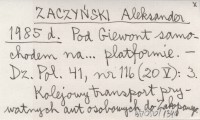 ZACZYŃSKI Aleksander
1985 d. Pod Giewont samo-
chodem na... platformie. —
Dz. Pol. 41, nr 116 (20 V): 3.
Kolejowy transport pry-
watnych aut osobowych do Zakopanego